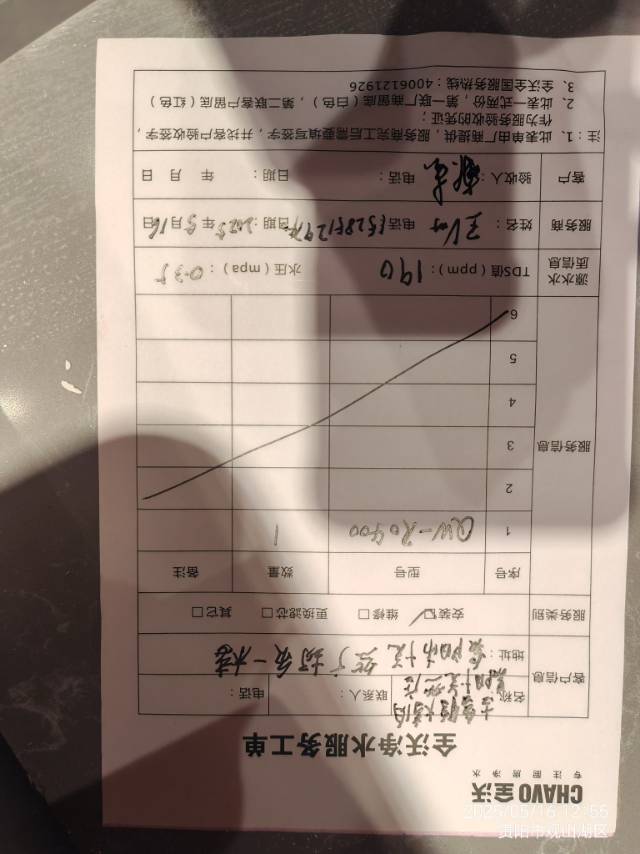 CHAVO 全沃
专 注 厨 房 净 水
全沃净水服务工单
客户信息
名称：
联系人：
电话：
地址：贵阳市
一楼
服务类别
安装☑ 维修□ 更换滤芯□ 其它□
服务信息
序号 型号 数量 备注
1 QW-RO400 1
2
3
4
5
6
源水水质信息
TDS值（ppm）：190 水压（mpa）：0.35
服务商
姓名： 电话： 日期：2025年5月16日
客户
验收人： 电话： 日期： 年 月 日
注：1、此表单由厂商提供，服务商完工后需要填写签字，并找客户验收签字，
作为服务验收的凭证；
2、此表一式两份，第一联厂商留底（白色），第二联客户留底（红色）
3、全沃全国服务热线：4006121926
2025/05/16 12:56
贵阳市观山湖区